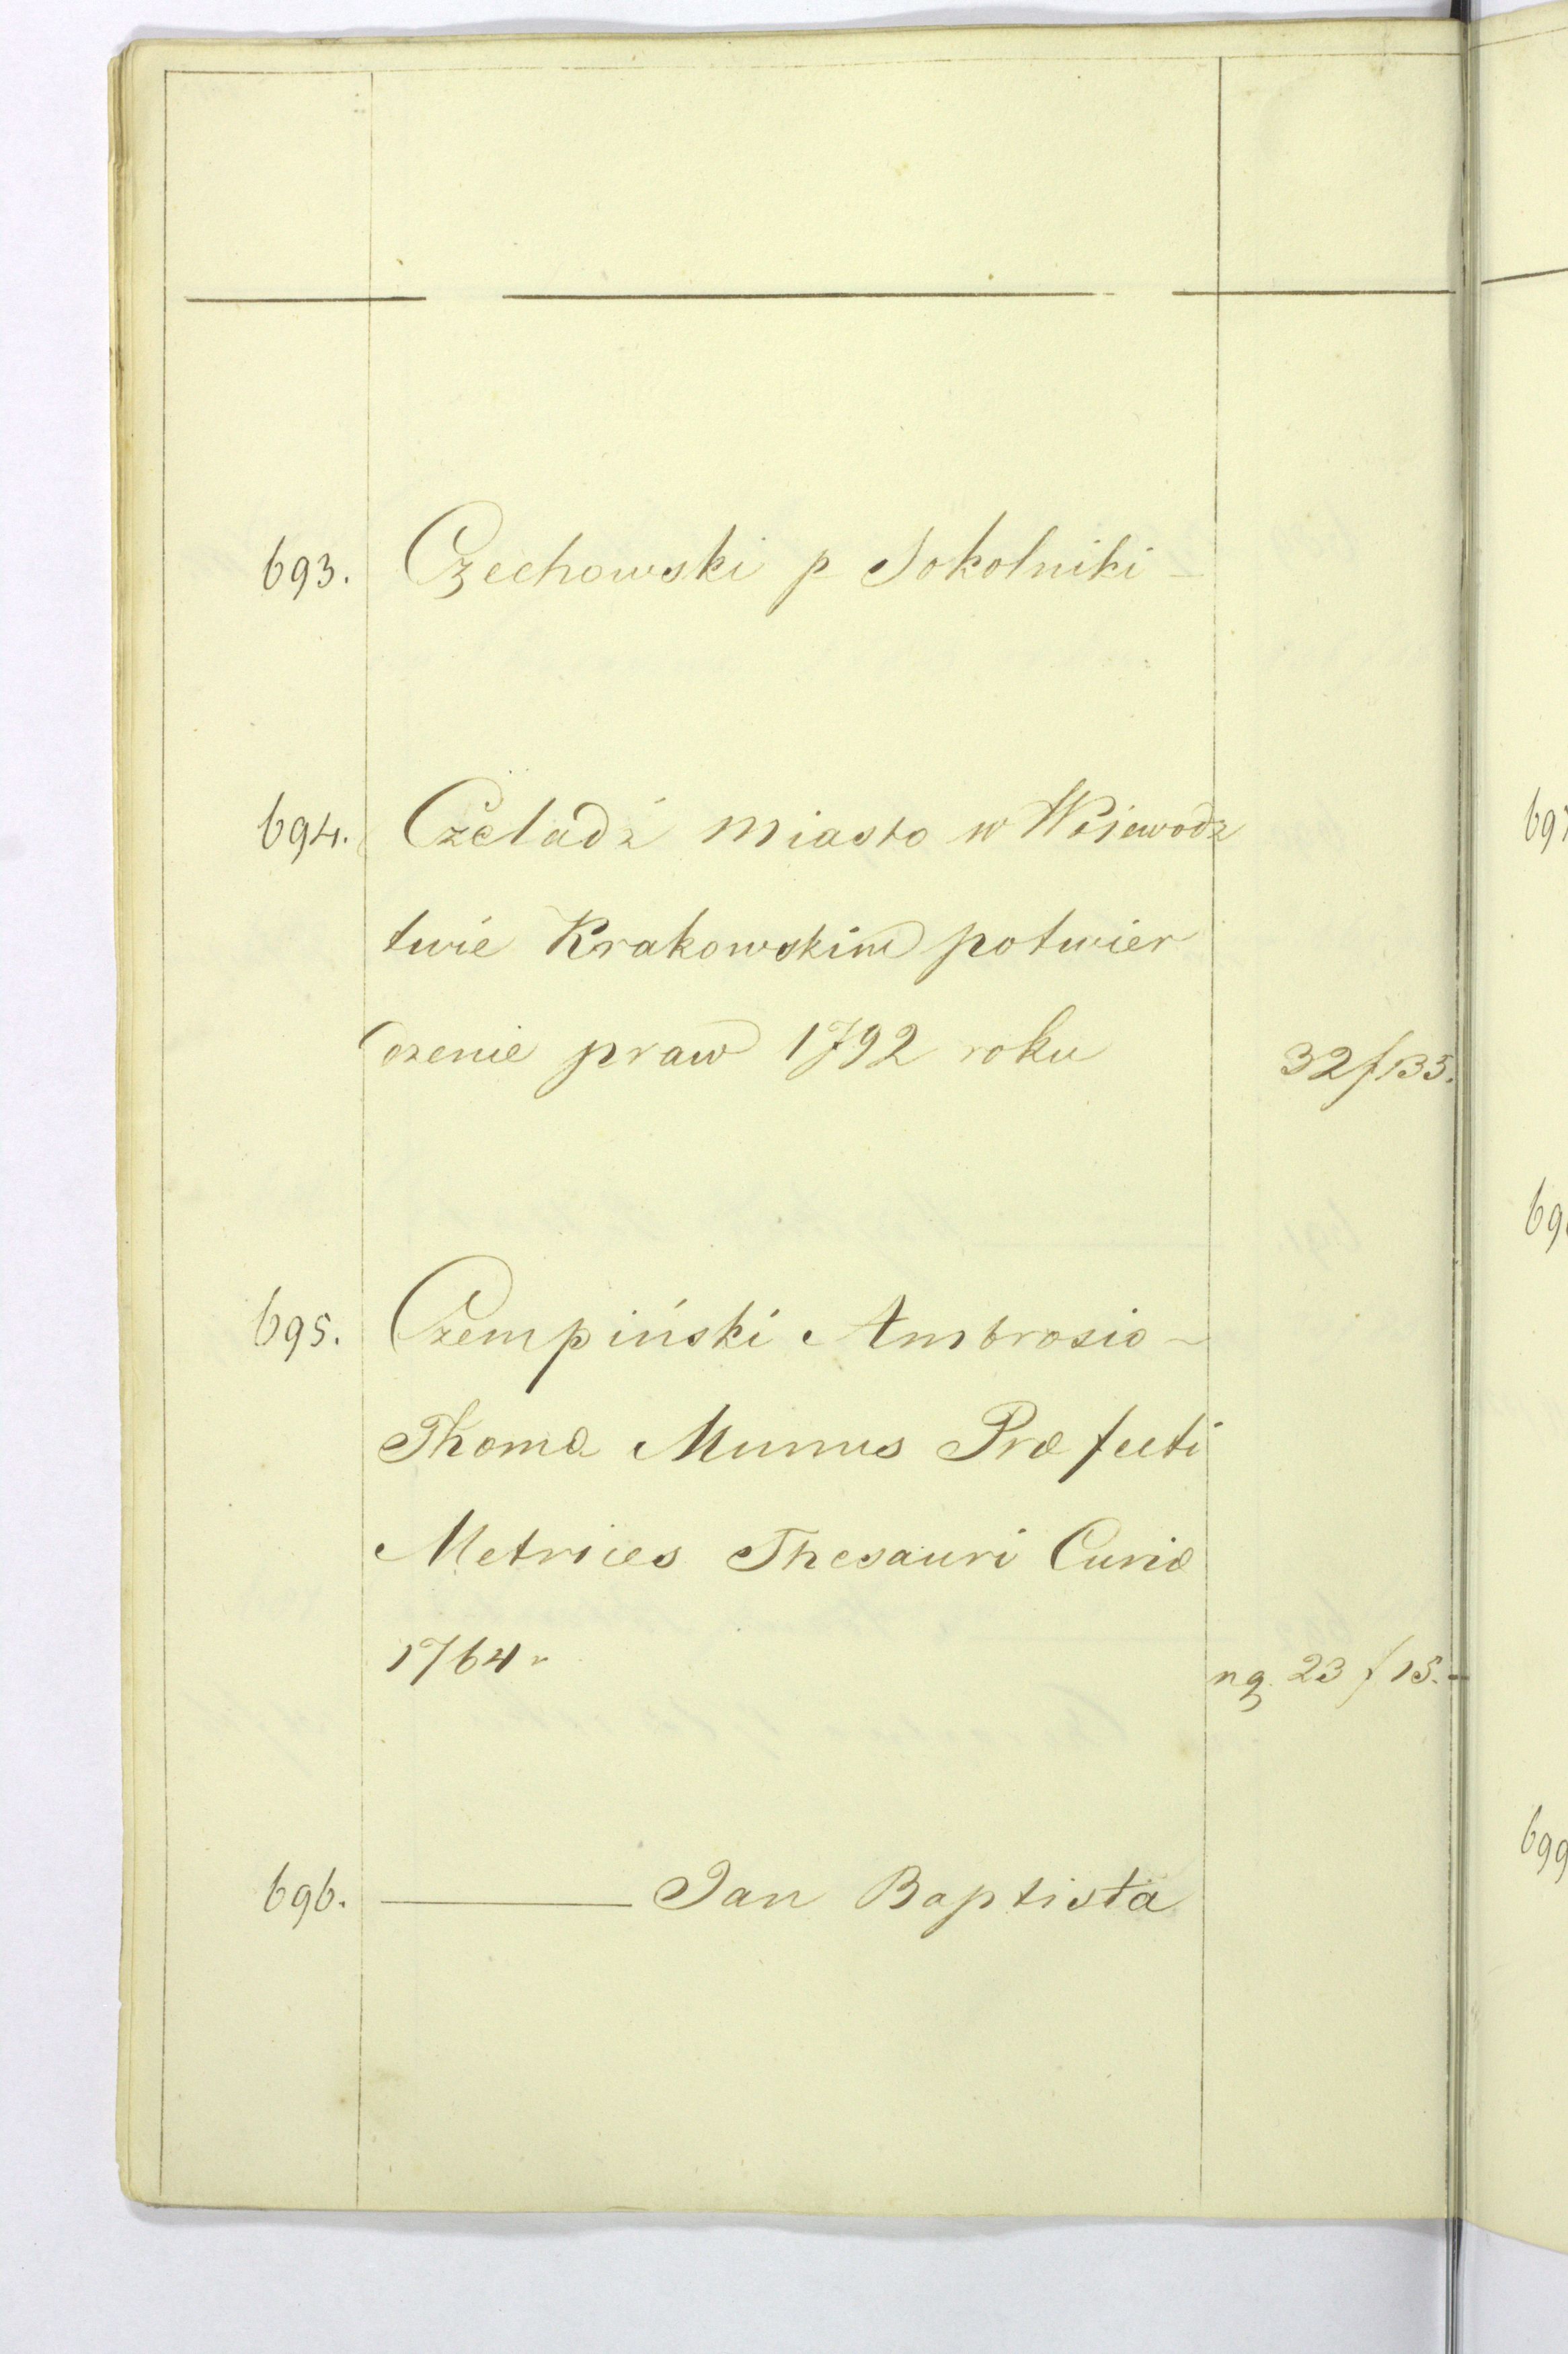 693. Czechowski p Sokolniki –
694. Czeladź miasto w Wojewodz
twie Krakowskim potwier
dzenie praw 1792 roku 32 f 135.
695. Czempiński Ambrosio ~
Thoma Munus Præfecti
Metrices Thesauri Curiæ
1764 r ng. 23 f 15. –
696. ——— Jan Baptista
699